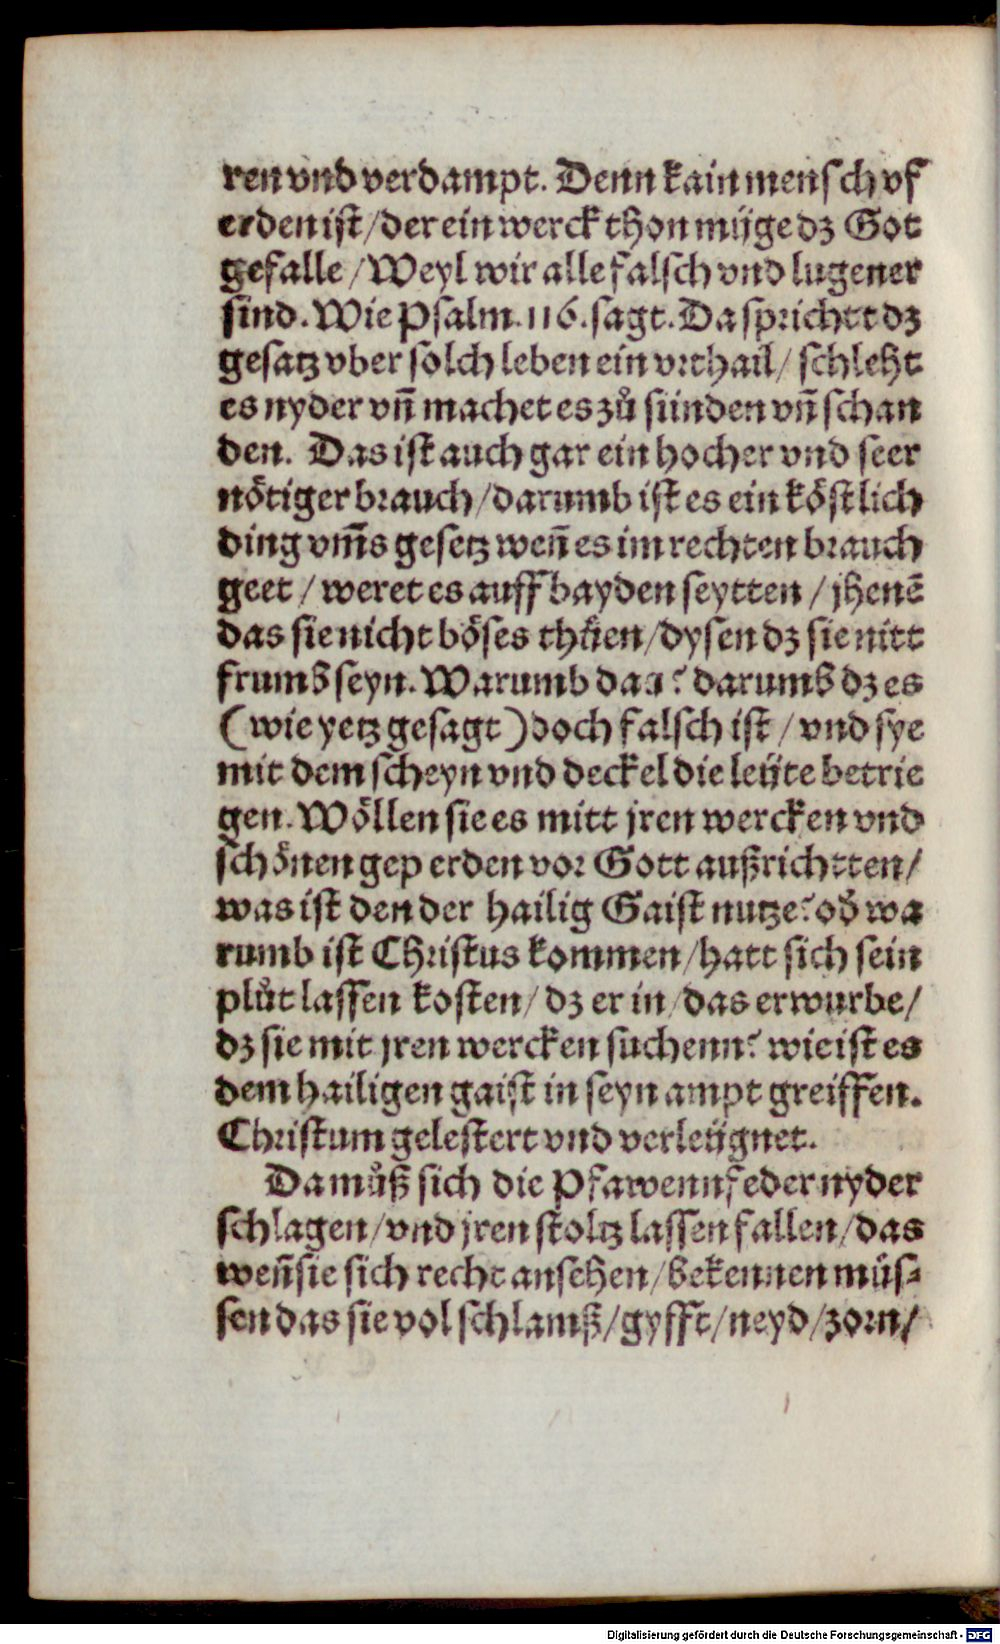 ren vnd verdampt. Denn kain mensch vf
erden ist / der ein werck thon müge dz Got
gefalle / Weyl wir alle falsch vnd lugener
sind. Wie Psalm. 116. sagt. Da sprichtt dz
gesatz vber solch leben ein vrthail / schleht
es nyder vñ machet es zů sünden vñ schan
den. Das ist auch gar ein hocher vnd seer
nötiger brauch / darumb ist es ein köstlich
ding vm̃s gesetz weñ es im rechten brauch
geet / weret es auff bayden seytten / jhenē
das sie nicht böses thůen / dysen dz sie nitt
frumb seyn. Warumb das? darumb dz es
(wie yetz gesagt) doch falsch ist / vnd sye
mit dem scheyn vnd deckel die leüte betrie
gen. Wöllen sie es mitt jren wercken vnd
schönen geperden vor Gott außrichtten /
was ist den der hailig Gaist nutze? oď wa
rumb ist Christus kommen / hatt sich sein
plůt lassen kosten / dz er in / das erwurbe /
dz sie mit jren wercken suchenn? wie ist es
dem hailigen gaist in seyn ampt greiffen.
Christum gelestert vnd verleügnet.
Da můß sich die Pfawennfeder nyder
schlagen / vnd jren stoltz lassen fallen / das
weñ sie sich recht ansehen / bekennen müs-
sen das sie vol schlamß / gyfft / neyd / zorn /
Digitalisierung gefördert durch die Deutsche Forschungsgemeinschaft - DFG